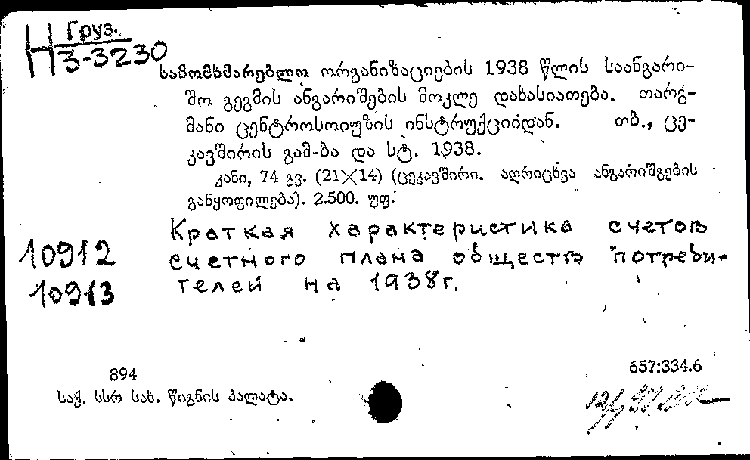 Груз.
Н 3-3230
სამომხმარებლო ორგანიზაციების 1938 წლის საანგარი-
შო გეგმის ანგარიშების მოკლე დახასიათება. თარგ-
მანი ცენტროსოიუზის ინსტრუქციიდან. თბ., ცე-
კავშირის გამ-ბა და სტ. 1938.
კანი, 74 გვ. (21×14) (ცეკავშირი. აღრიცხვა ანგარიშგების
განყოფილება). 2.500. უფ.
Краткая характеристика счетов
10912 счетного плана обществ потреби-
10913 телей на 1938г.
894 657:334.6
საქ. სსრ სახ. წიგნის პალატა.